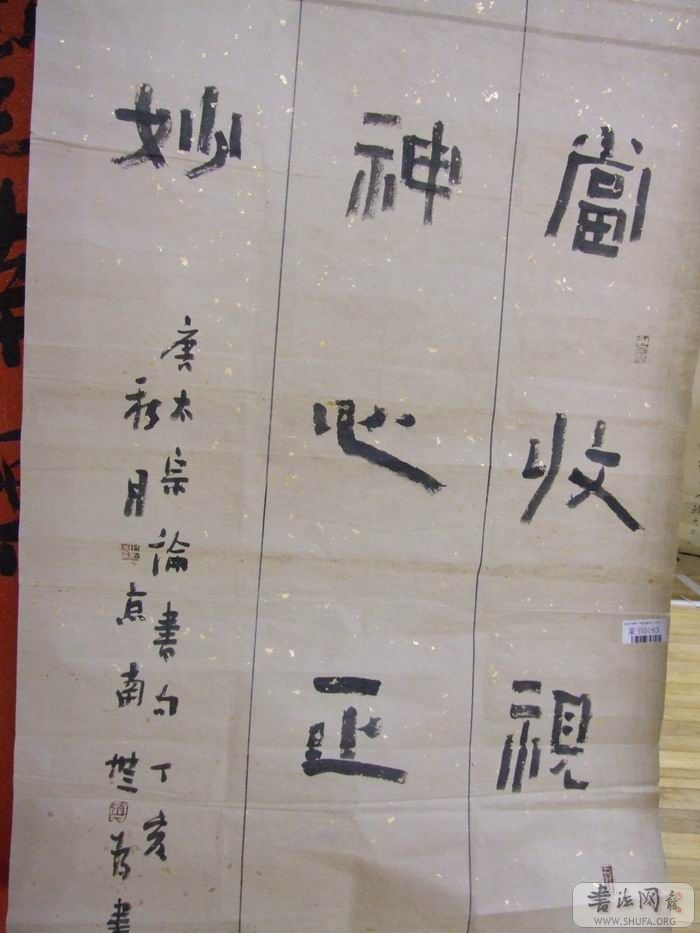 當收視
神心正
妙
唐太宗論書句丁亥
秋月京南
書法网
WWW.SHUFA.ORG